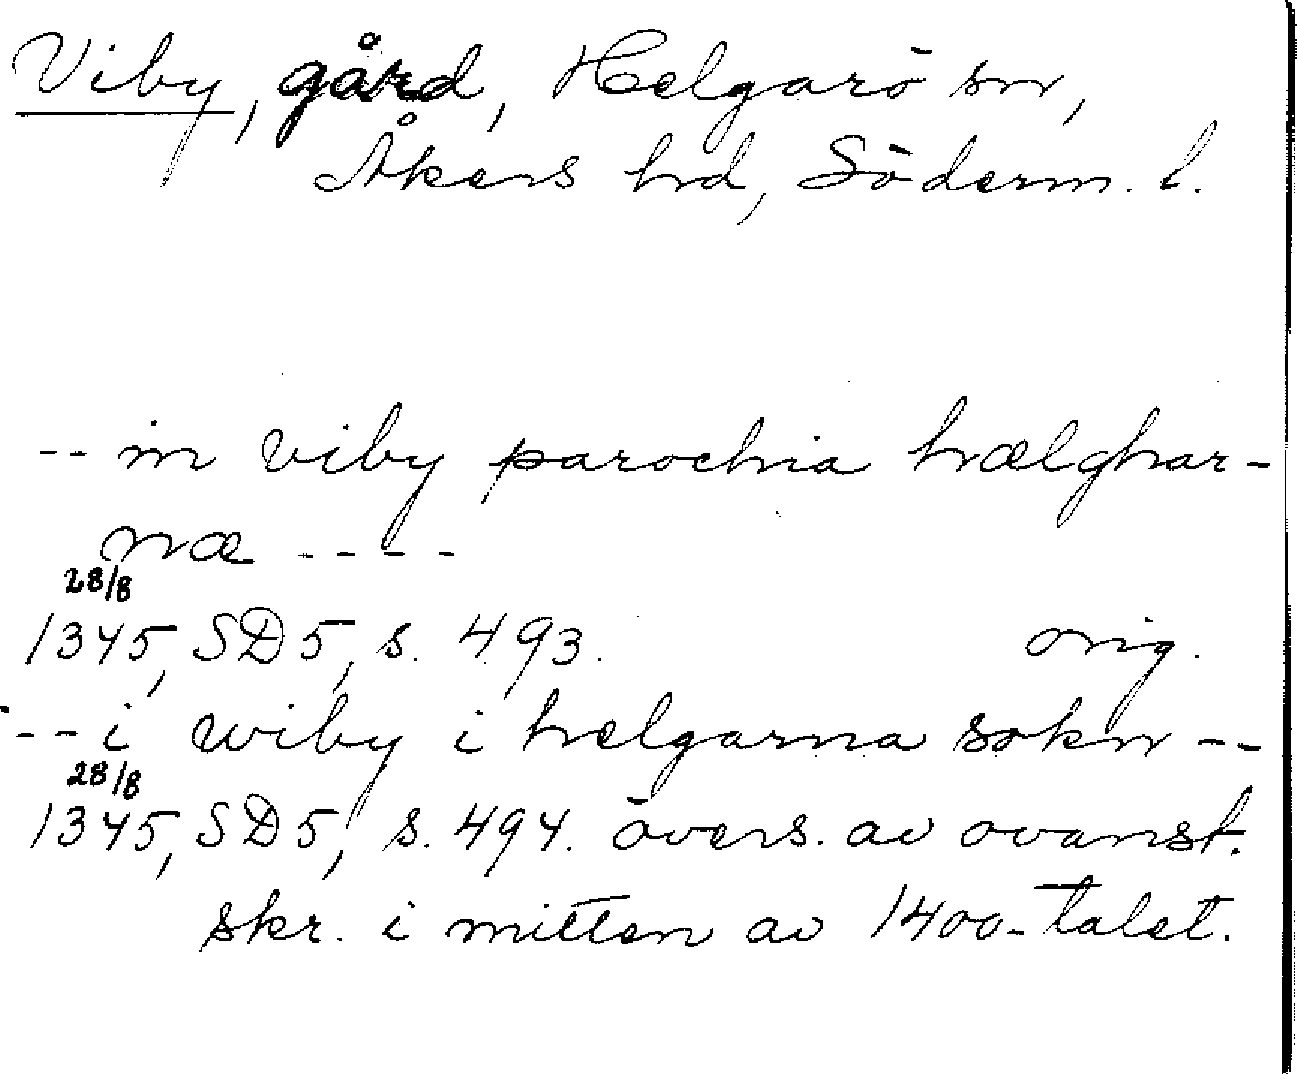 Viby, gård, Helgarö sn,
Åkers hd, Söderm. l.
-- in viby parochia hælghar-
næ ----
28/8
1345, SD 5, s. 493. orig.
--- i wiby i helgarna sokn --
28/8
1345, SD 5, s. 494. övers. av ovanst.
skr. i mitten av 1400-talet.